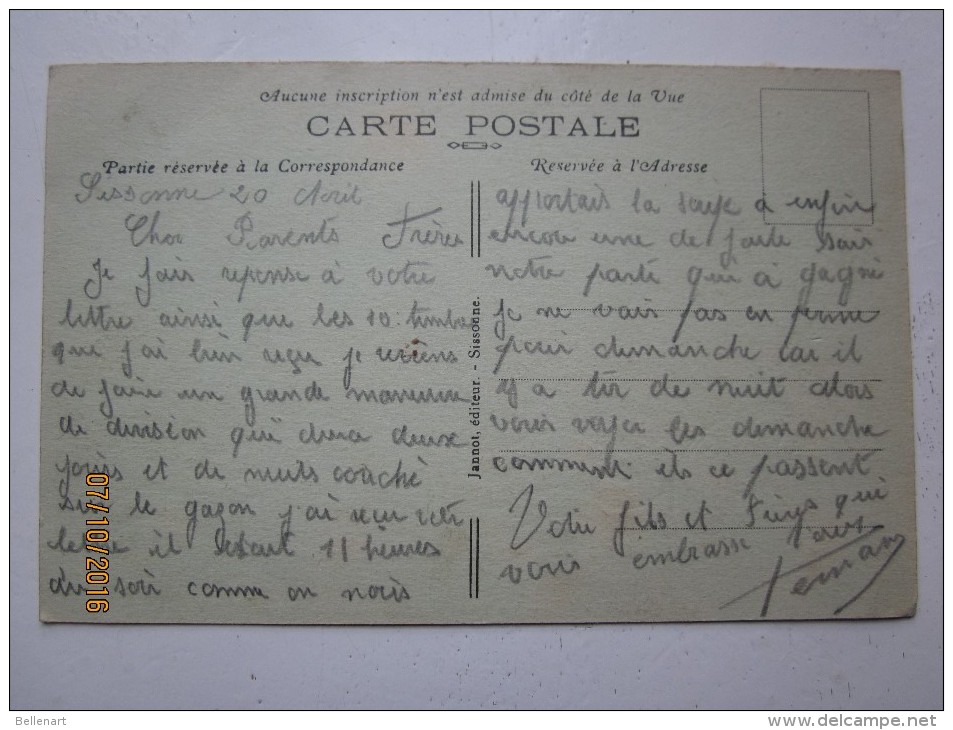 Aucune inscription n'est admise du côté de la Vue
CARTE POSTALE
Partie réservée à la Correspondance
Sissonne 20 Avril
Cher Parents Frères
Je fais reponse à votre
lettre ainsi que les 10 timbre
que j'ai bien reçu je reviens
de faire un grande manoeuvre
de division qui dura deux
jours et de nuits couché
sur le gazon j'ai reçu votre
lettre il etait 11 heures
du soir comme on nous
Jannot, éditeur. - Sissonne.
Reservée à l'Adresse
apportais la soupe a enfin
encore une de faite sais
notre parti qui à gagné
je ne vais pas en perme
pour dimanche car il
y a tir de nuit alors
vous voyez les dimanche
comment ils ce passent
Votre fils et Frères qui
vous embrasse tous
Fernand
07/10/2016
Bellenart
delcampe.net